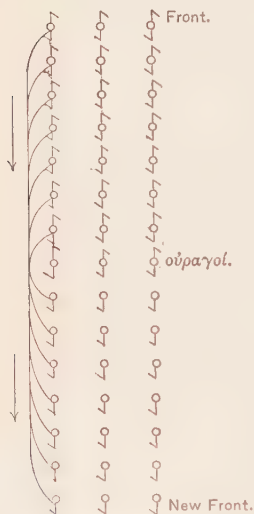 Front.
οὐραγοί.
New Front.